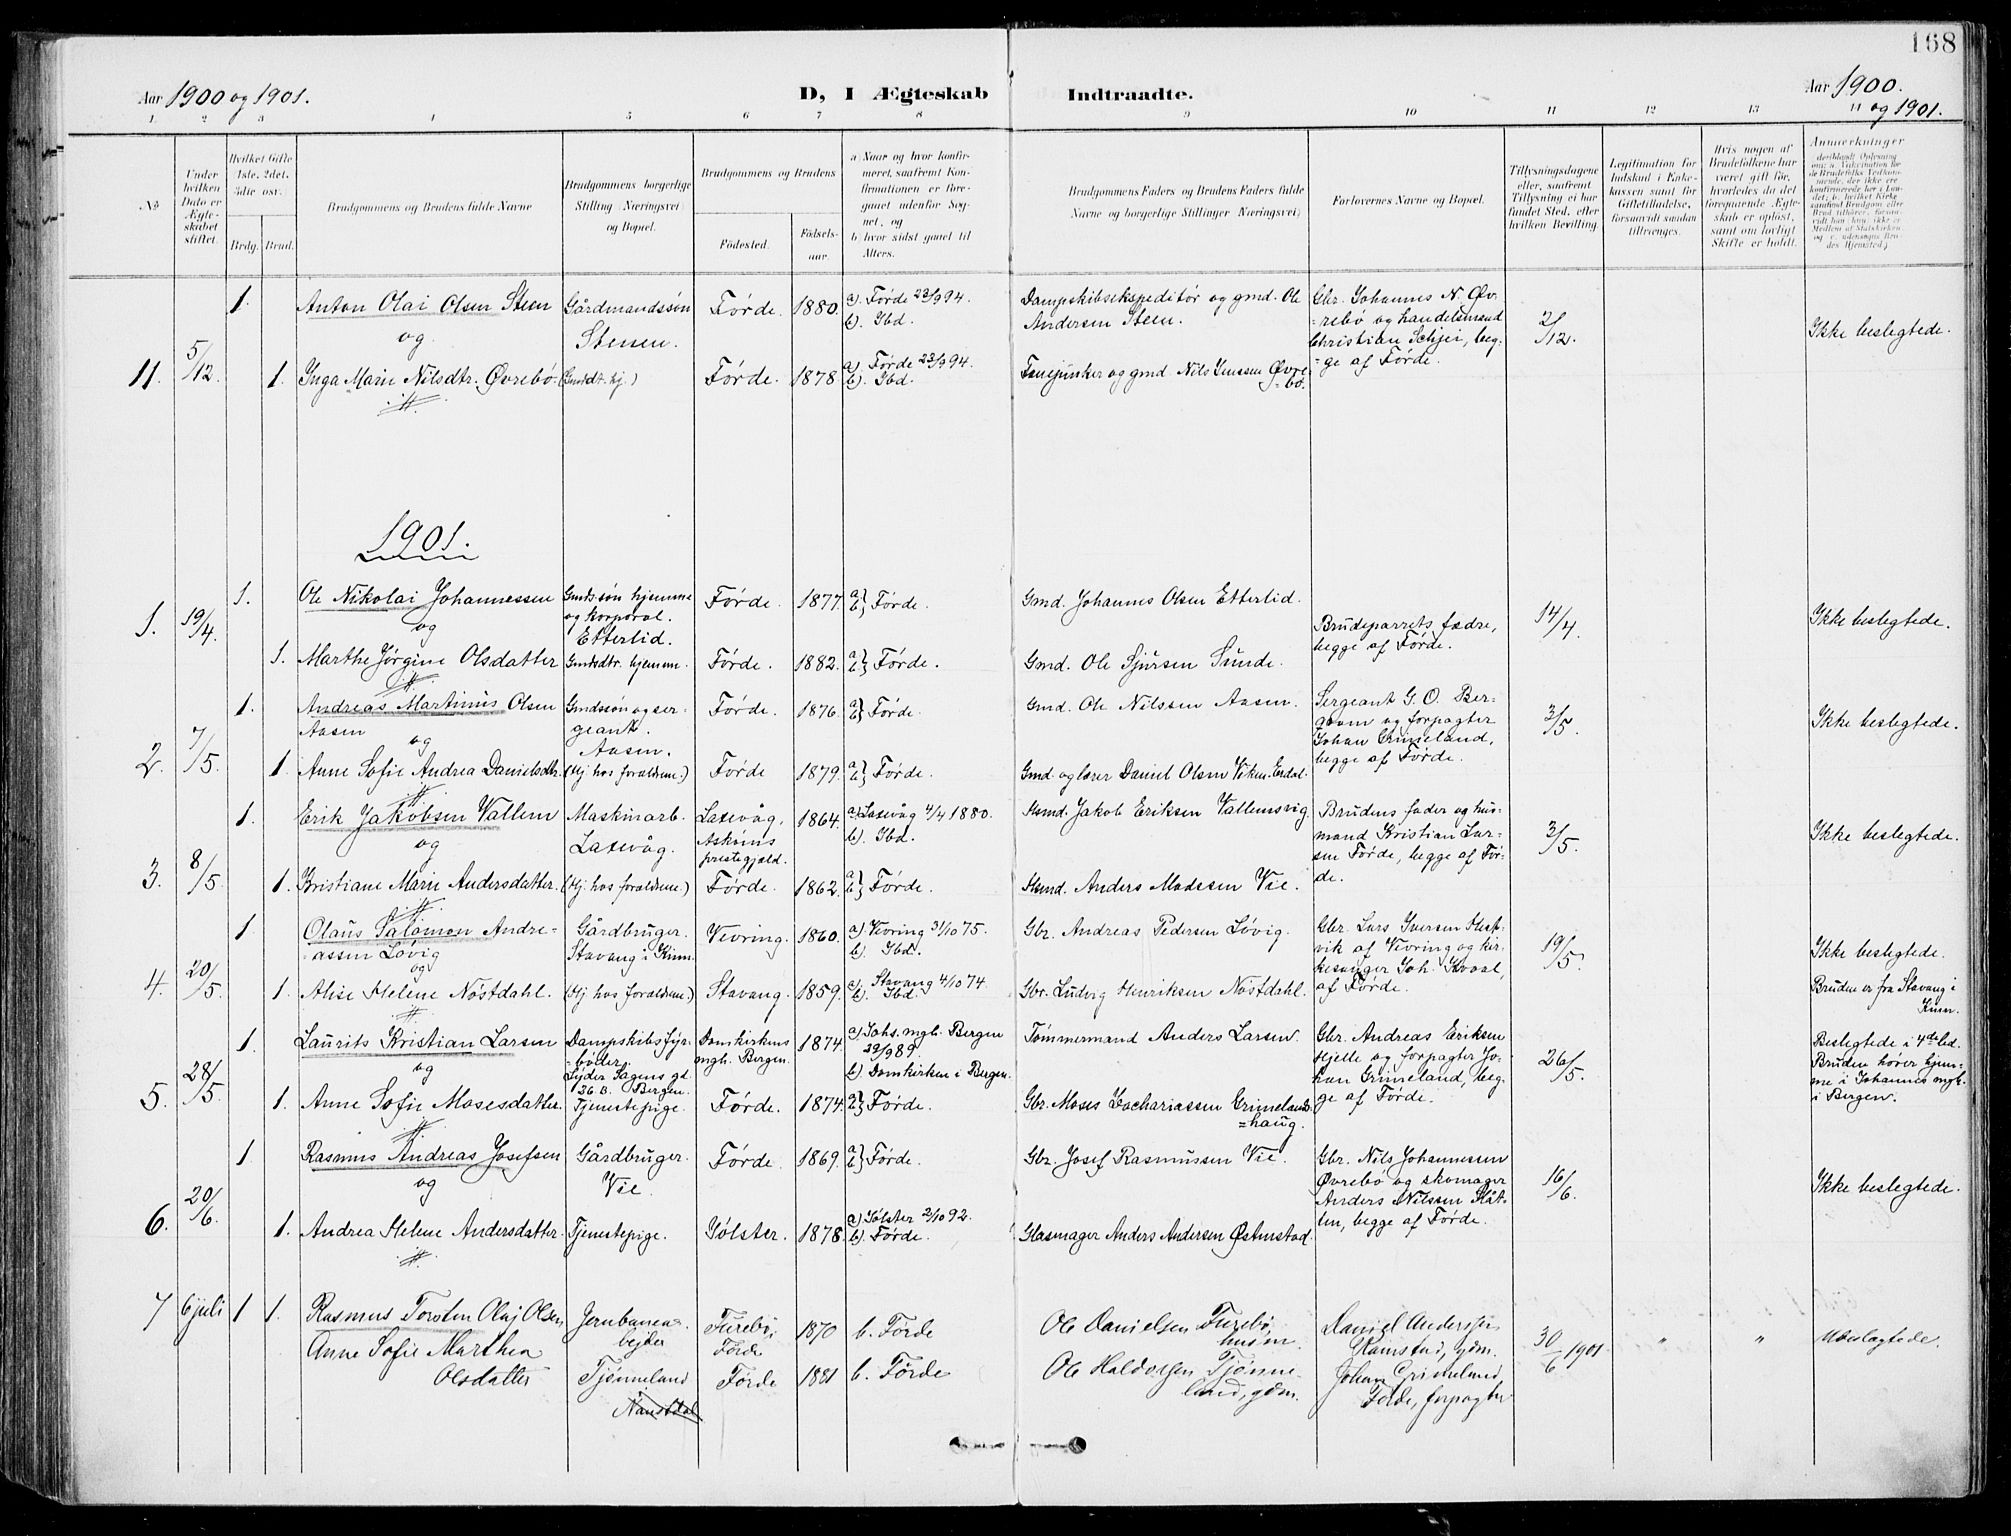 168
Aar 1900 og 1901.
D, I Ægteskab Indtraadte.
Aar 1900.
og 1901.
1 2 3 4 5 6 7 8 9 10 11 12 13 14
No
Under hvilken Dato er Ægteskabet stiftet.
Hvilket Gifte 1ste, 2det, 3die osv.
Brdg. Brud.
Brudgommens og Brudens fulde Navne
Brudgommens borgerlige Stilling (Næringsvei) og Bopæl.
Brudgommens og Brudens
Fødested.
Fødselsaar.
a Naar og hvor konfirmeret, saafremt Konfirmationen er foregaaet udenfor Sognet, og
b hvor sidst gaaet til Alters.
Brudgommens Faders og Brudens Faders fulde Navne og borgerlige Stillinger (Næringsvei)
Forlovernes Navne og Bopæl.
Tillysningsdagene eller, saafremt Tillysning ei har fundet Sted, efter hvilken Bevilling.
Legitimation for Indskud i Enkekassen samt for Giftetilladelse, forsaavidt saadan tiltrænges.
Hvis nogen af Brudefolkene har været gift før, hvorledes da det foregaaende Ægteskab er opløst, samt om lovligt Skifte er holdt.
Anmærkninger
11. 5/12.
1. Anton Olai Olsen Steen
og
Gårdmandssøn
Stensen.
Førde. 1880. a). Førde 23/9 94.
b). Ibd.
Dampskibsekspeditør og gmd. Ole
Andersen Steen.
Gbr. Johannes N. Øvrebø og handelsmand
Christian Schjei, begge af Førde.
2/12.
Ikke beslegtede.
1. Inga Marie Nilsdtr. Øvrebø. (Gmdsdt. hj.)
Førde. 1878. a). Førde 23/9 94.
b). Ibd.
Fanejunker og gmd. Nils Jenssen Øvrebø.
1901.
1. 19/4.
1. Ole Nikolai Johannessen
og
Gmdssøn hjemme
og korporal.
Etterlid.
Førde. 1877. a} b} Førde.
Gmd. Johannes Olsen Etterlid.
Brudeparrets fædre,
begge af Førde.
14/4.
Ikke beslegtede.
1. Marthe Jørgine Olsdatter
Gmdsdtr. hjemme.
Førde. 1882. a} b} Førde.
Gmd. Ole Sjursen Sunde.
2. 7/5.
1. Andreas Martinus Olsen
Aasen
og
Gmdssøn og sergeant.
Aasen.
Førde. 1876. a} b} Førde.
Gmd. Ole Nilssen Aasen.
Sergeant G. O. Bergum og forpagter
Johan Grimeland,
begge af Førde.
3/5.
Ikke beslegtede.
1. Anne Sofie Andrea Danielsdtr. (Hj. hos forældrene.)
Førde 1879. a} b} Førde.
Gmd. og lærer Daniel Olsen Viken. Erdal.
3. 8/5.
1. Erik Jakobsen Vallem
og
Maskinarb.
Laxevåg.
Laxevåg,
Askøens
prestegjæld.
1864. a). Laxevåg 4/4 1880.
b). Ibd.
Husmd. Jakob Eriksen Vallemsvig.
Brudens fader og husmand Kristian Larsen Førde, begge af Førde.
3/5.
Ikke beslegtede.
1. Kristiane Marie Andersdatter. (Hj. hos forældrene.)
Førde. 1862. a} b} Førde.
Husmd. Anders Madssen Vie.
4. 20/5.
1. Olaus Salomon Andreassen Løvig
og
Gårdbruger.
Stavang i Kinn.
Vevring. 1860. a) Vevring 31/10 75.
b). Ibd.
Gbr. Andreas Pedersen Løvig.
Gbr. Lars Iversen Hestvik af Vevring og kirkesanger Joh. Kvaal,
af Førde.
19/5.
Ikke beslegtede.
Bruden er fra Stavang i
Kinn.
1. Alise Helene Nøstdahl. (Hj. hos forældrene.)
Stavang. 1859. a). Stavang 4/10 74.
b). Ibd.
Gbr. Ludvig Henriksen Nøstdahl.
5. 28/5.
1. Laurits Kristian Larsen
og
Dampskibsfyrbøder
Lyder Sagens gd.
36 B. Bergen.
Domkirkens
mgh. Bergen.
1874. a) Johs. mgh. Bergen
29/9 89.
b). Domkirken i Bergen.
Tømmermand Anders Larsen.
Gbr. Andreas Eriksen
Hjelle og forpagter Johan Grimeland, begge af Førde.
26/5.
Beslegtede i 4de led.
Bruden hører hjemme i Johannes mgh.
i Bergen.
1. Anne Sofie Mosesdatter.
Tjenestepige.
Førde. 1874. a} b} Førde.
Gbr. Moses Zachariassen Grimelandshaug.
6. 20/6.
1. Rasmus Andreas Josefsen
og
Gårdbruger.
Vie.
Førde. 1869. a} b} Førde.
Gbr. Josef Rasmussen Vie.
Gbr. Nils Johannessen
Øvrebø og skomager
Anders Nilssen Slåtten, begge af Førde.
16/6.
Ikke beslegtede.
1. Andrea Helene Andersdatter.
Tjenestepige.
Jølster. 1878. a) Jølster 2/10 92.
b). Førde.
Glasmager Anders Andersen Østenstad.
7 6 juli 1 1.
Rasmus Torsten Olaj Olsen
Jernbanearbejder
Furebø,
Førde
1870 b. Førde
Ole Danielsen Furebø
husm.
Daniel Anderssen
Hamstad, gdm.
30/6 1901 " "
Ubeslægtede.
Anne Sofie Marthea
Olsdatter
Tjønneland
Naustdal
Førde 1881 b. Førde
Ole Haldorsen Tjønneland, gdm.
Johan Grimeland,
Førde, forpagter